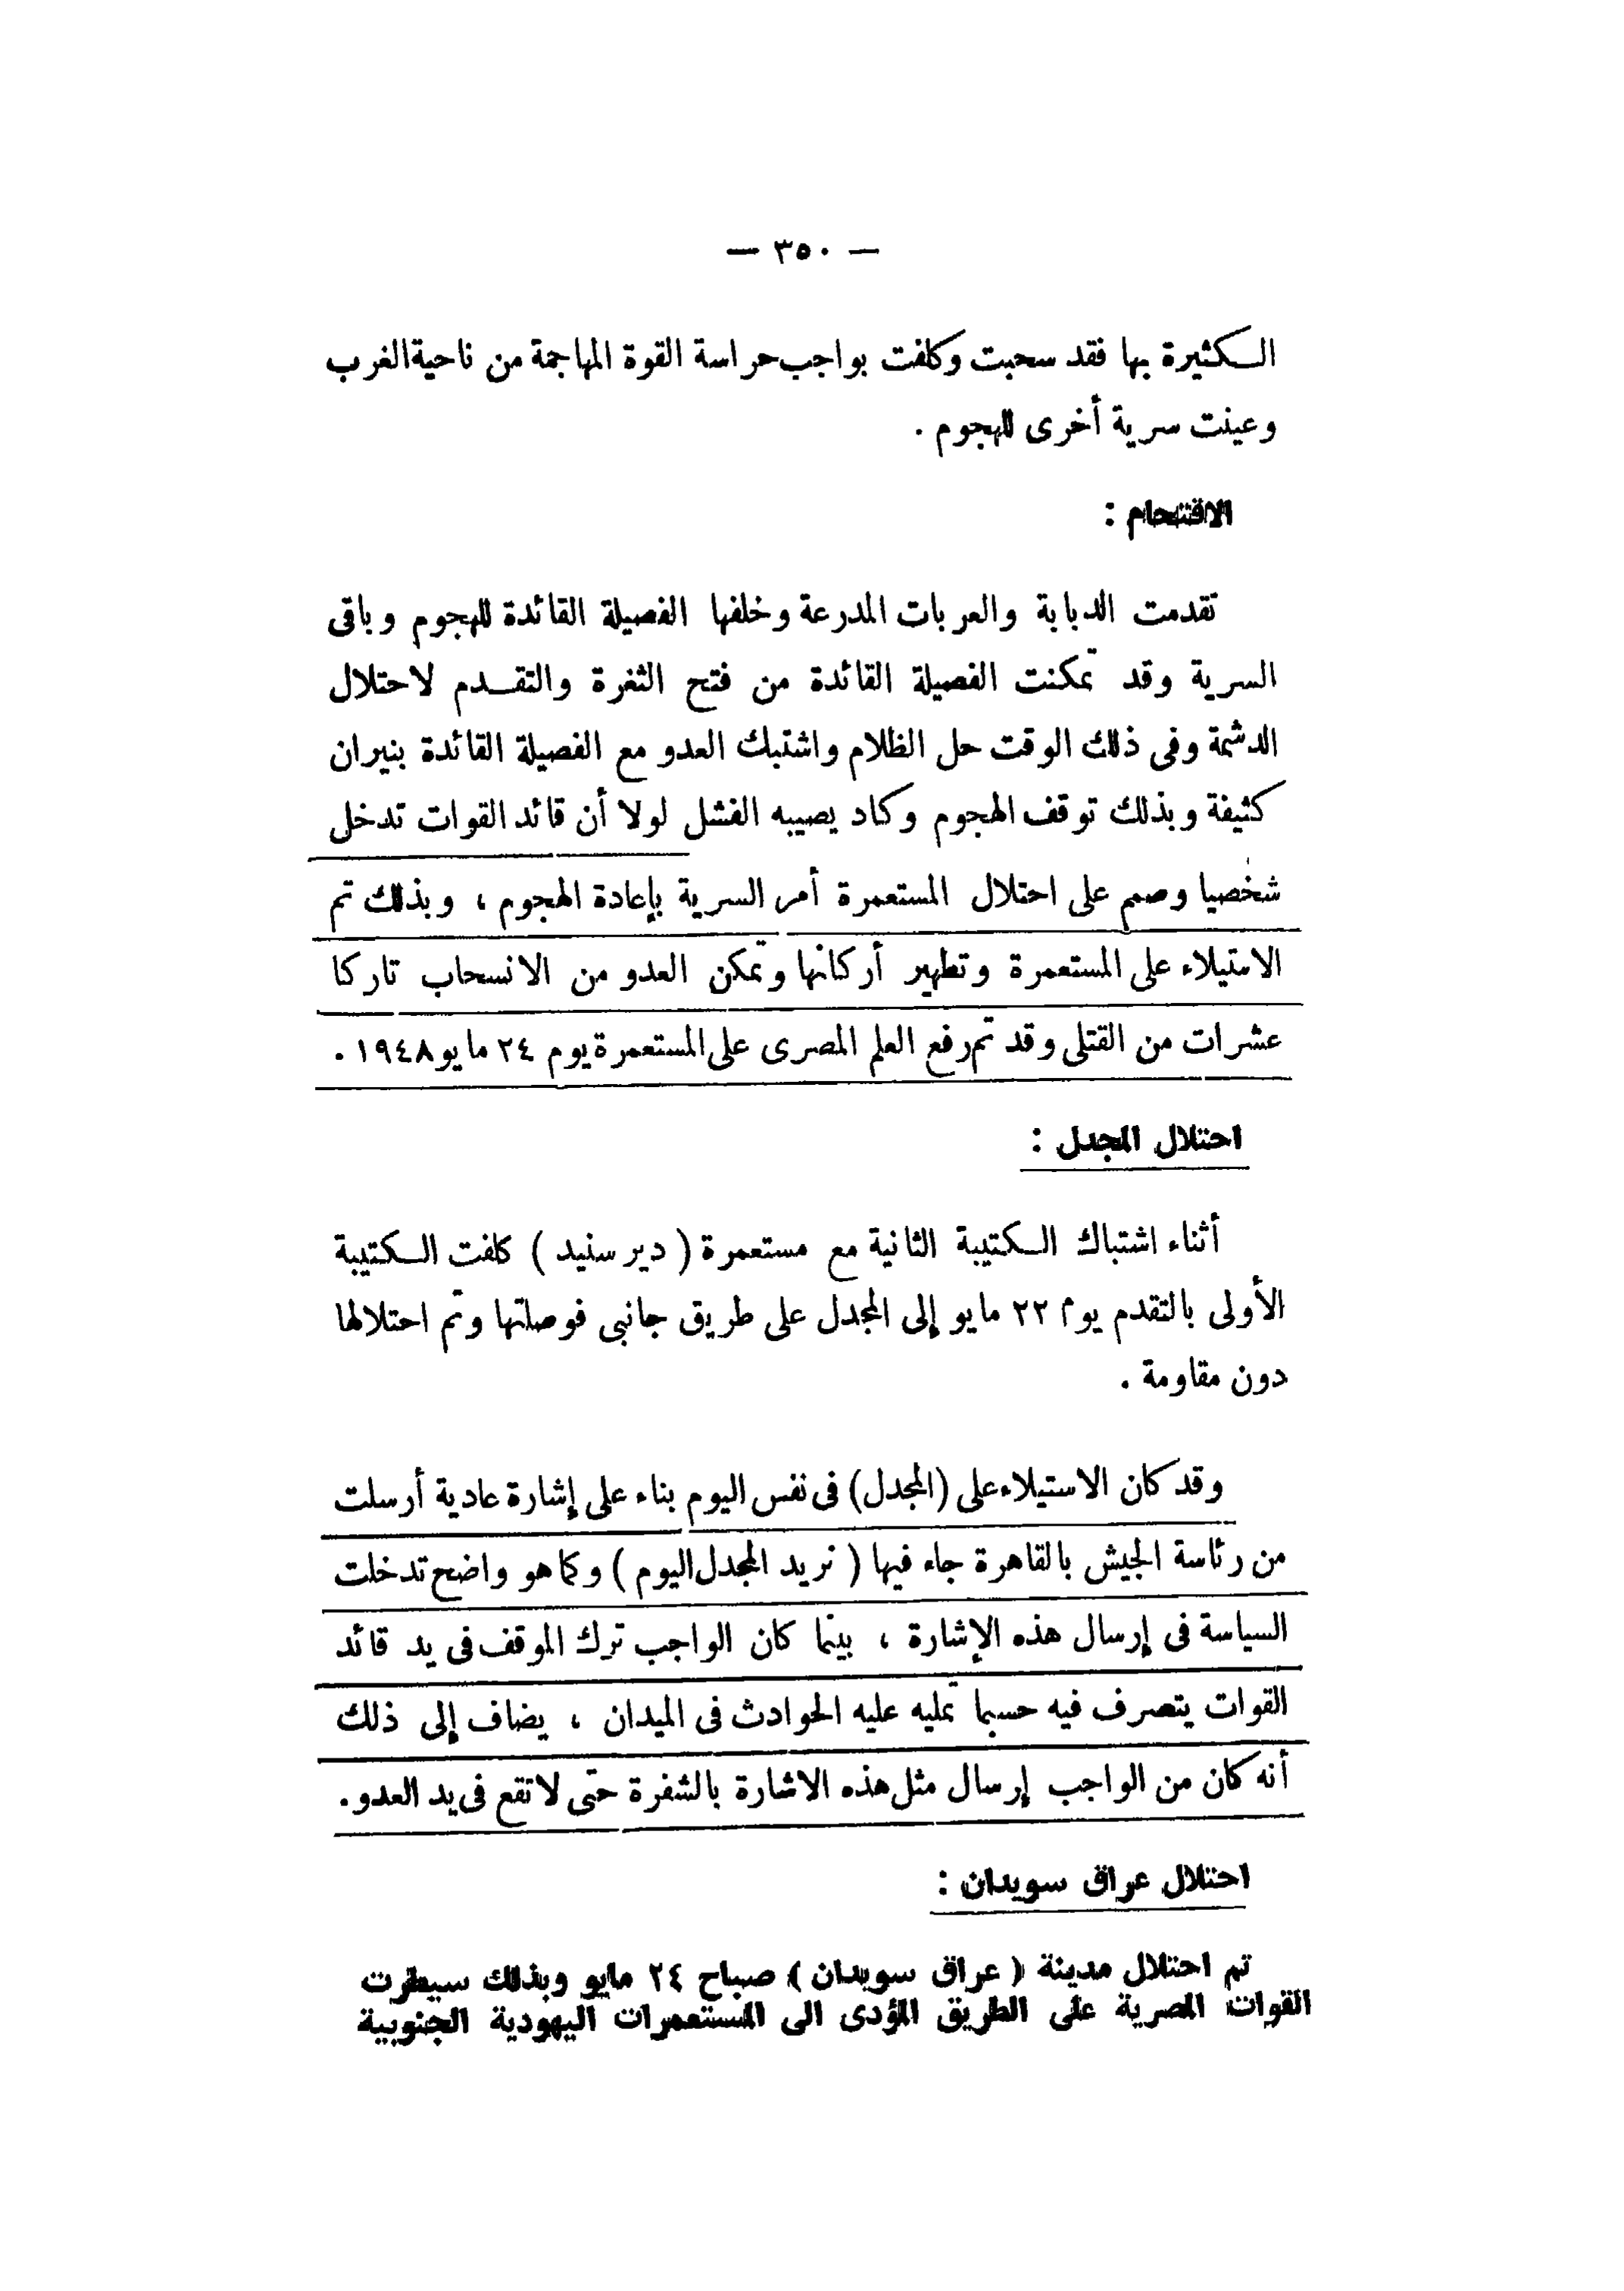 — ٣٥٠ —
الكثيرة بها فقد سحبت وكلفت بواجب حراسة القوة المهاجمة من ناحية الغرب
وعينت سرية أخرى للهجوم .
الاقتحام :
تقدمت الدبابة والعربات المدرعة وخلفها الفصيلة القائدة للهجوم وباقى
السرية وقد تمكنت الفصيلة القائدة من فتح الثغرة والتقدم لاحتلال
الدشمة وفى ذلك الوقت حل الظلام واشتبك العدو مع الفصيلة القائدة بنيران
كثيفة وبذلك توقف الهجوم وكاد يصيبه الفشل لولا أن قائد القوات تدخل
شخصيا وصمم على احتلال المستعمرة أمر السرية بإعادة الهجوم ، وبذلك تم
الاستيلاء على المستعمرة وتطهير أركانها وتمكن العدو من الانسحاب تاركا
عشرات من القتلى وقد تم رفع العلم المصرى على المستعمرة يوم ٢٤ مايو ١٩٤٨ .
احتلال المجدل :
أثناء اشتباك الكتيبة الثانية مع مستعمرة ( دير سنيد ) كلفت الكتيبة
الأولى بالتقدم يوم ٢٢ مايو إلى المجدل على طريق جانبى فوصلتها وتم احتلالها
دون مقاومة .
وقد كان الاستيلاء على (المجدل) فى نفس اليوم بناء على إشارة عادية أرسلت
من رئاسة الجيش بالقاهرة جاء فيها ( نريد المجدل اليوم ) وكما هو واضح تدخلت
السياسة فى إرسال هذه الإشارة ، بينما كان الواجب ترك الموقف فى يد قائد
القوات يتصرف فيه حسبما تمليه عليه الحوادث فى الميدان ، يضاف إلى ذلك
أنه كان من الواجب إرسال مثل هذه الاشارة بالشفرة حتى لا تقع فى يد العدو .
احتلال عراق سويدان :
تم احتلال مدينة ( عراق سويدان ) صباح ٢٤ مايو وبذلك سيطرت
القوات المصرية على الطريق المؤدى الى المستعمرات اليهودية الجنوبية